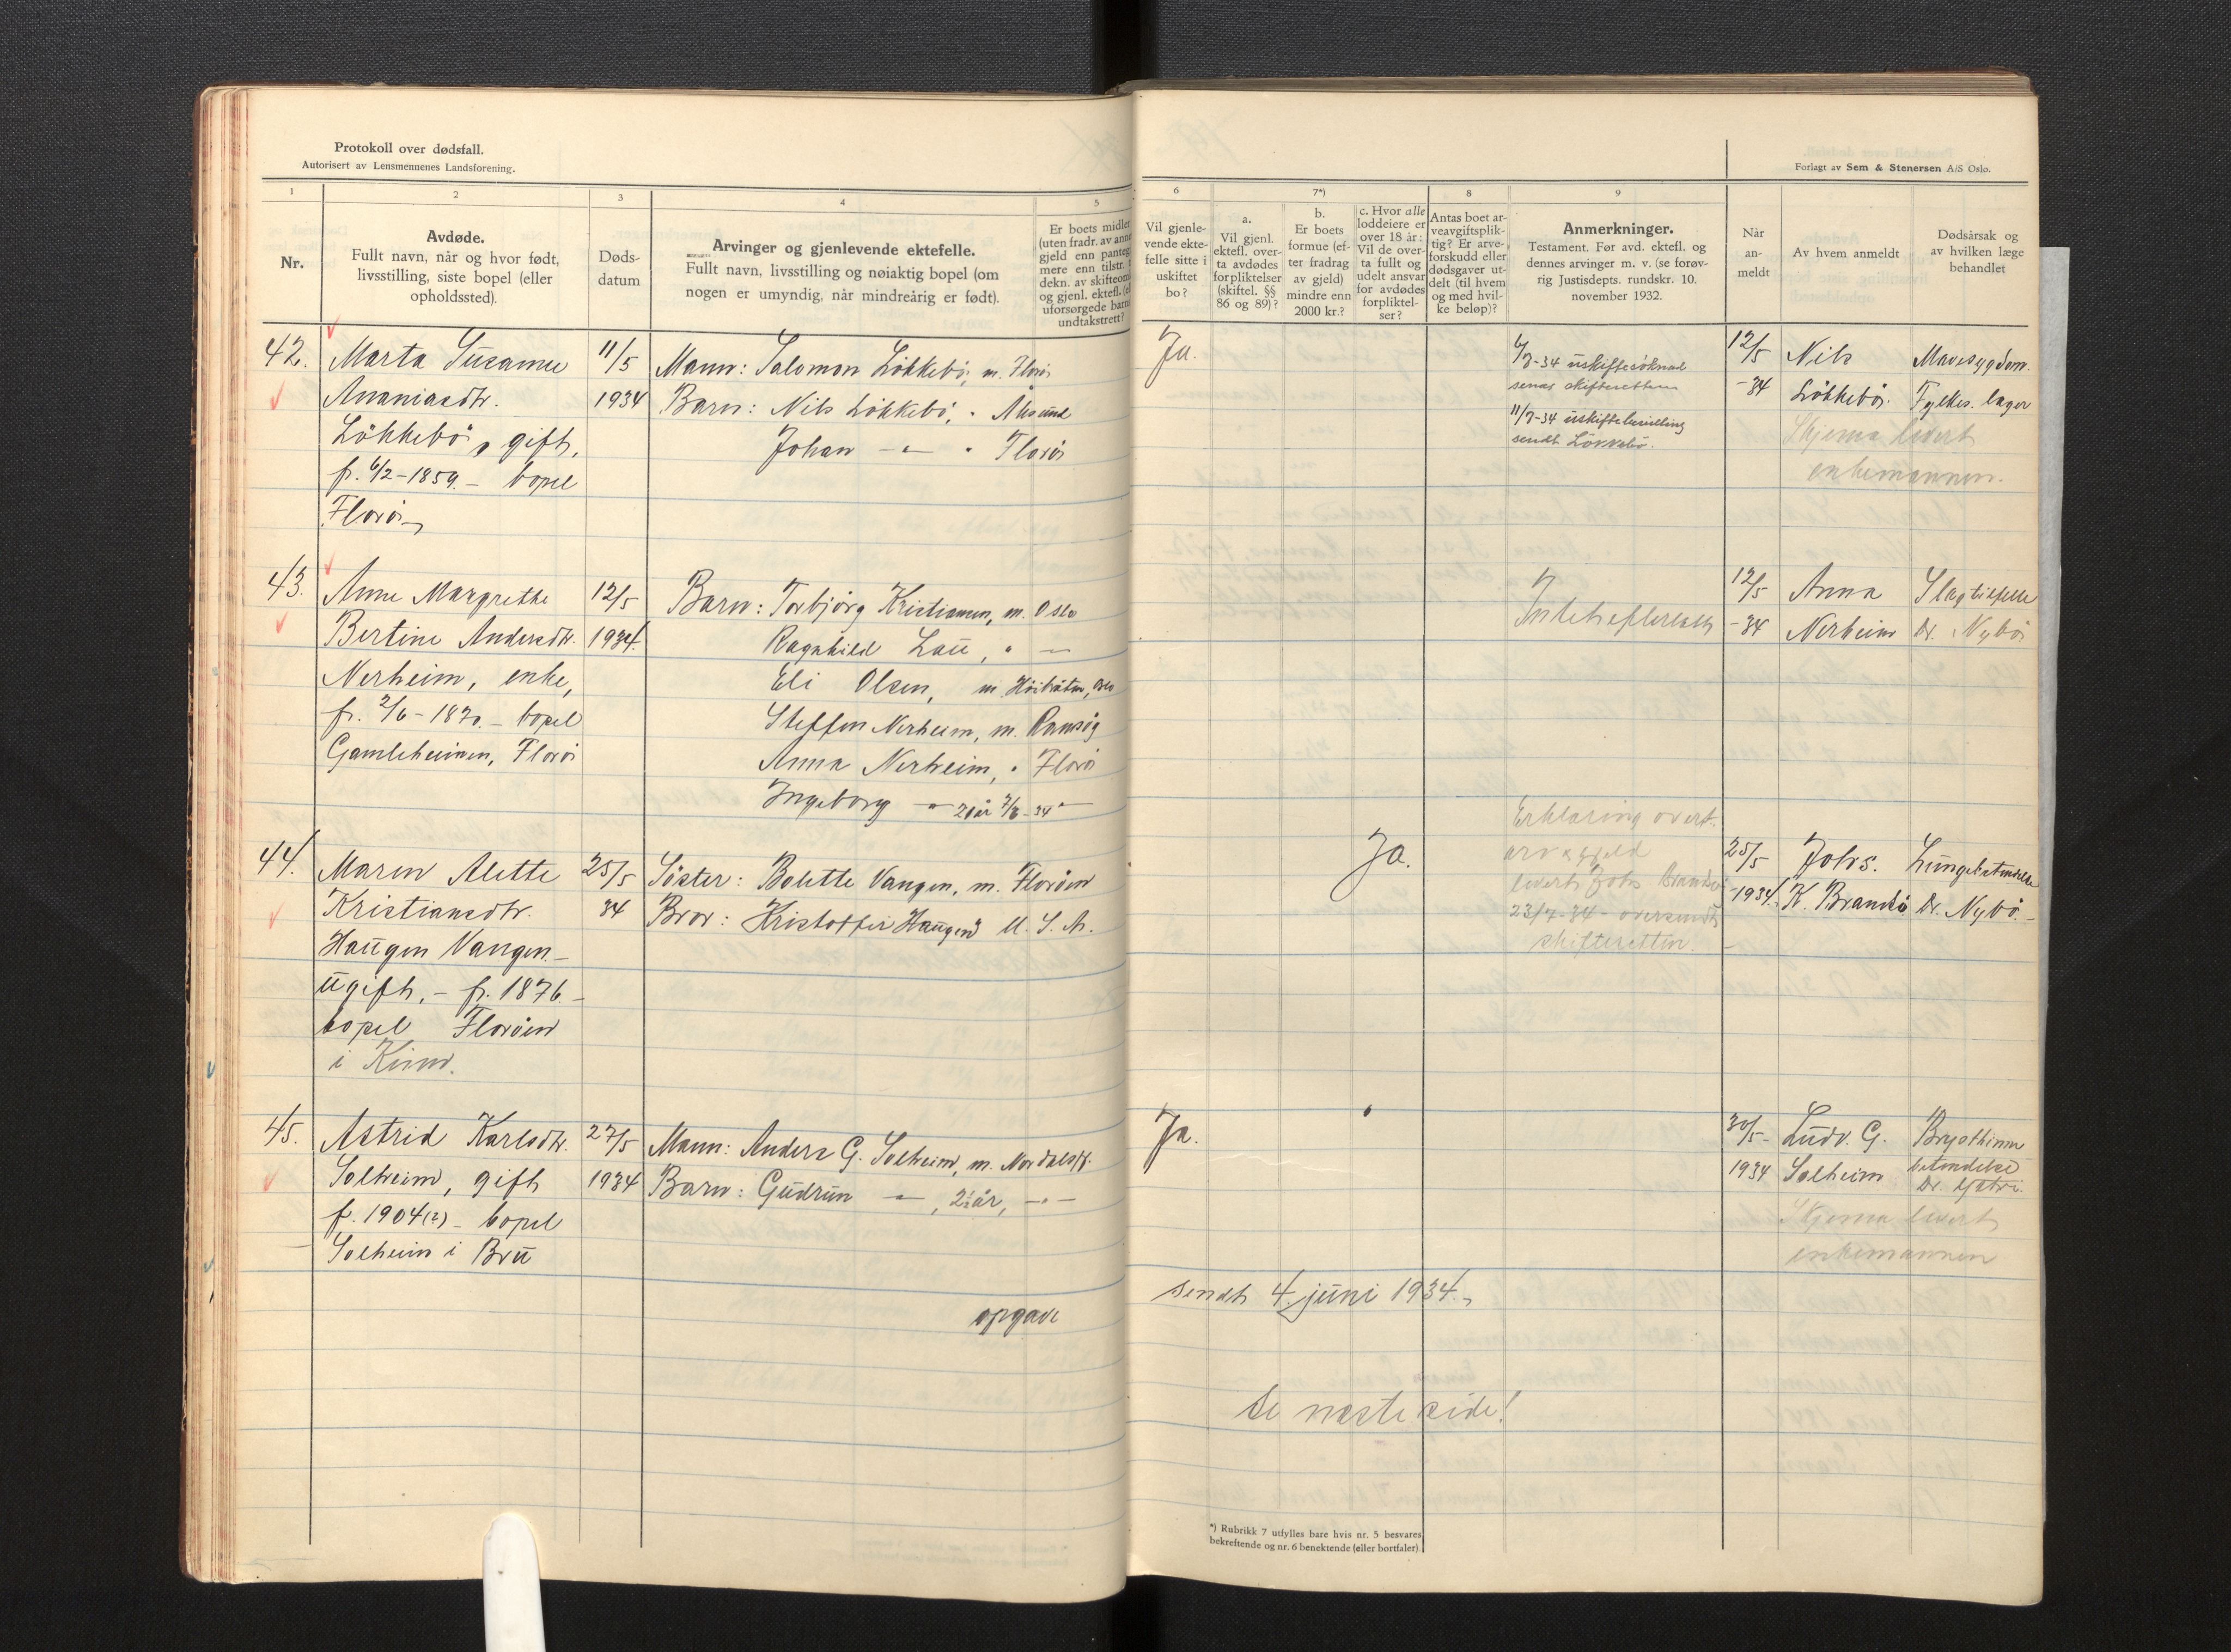 Protokoll over dødsfall.
Autorisert av Lensmennenes Landsforening.
1
2
3
4
5
Nr.
Avdøde.
Fullt navn, når og hvor født,
livsstilling, siste bopel (eller
opholdssted).
Døds-
datum
Arvinger og gjenlevende ektefelle.
Fullt navn, livsstilling og nøiaktig bopel (om
nogen er umyndig, når mindreårig er født).
Er boets midler
(uten fradr. av
gjeld enn
mere enn tilstr.
dekn. av
og gjenl. ektefl.
uforsørgede
undtakstrett?
42.
Marta Susanne
Ananiasdtr.
Løkkebø, gift,
f. 6/2-1859. - bopel
Florø
11/5
1934
Mann: Salomon Løkkebø, m. Florø
Barn: Nils Løkkebø, " Ålesund
Johan - " - " Florø
43.
Anne Margrethe
Bertine Andersdtr.
Nerheim, enke,
f. 2/6-1870. - bopel
Gamleheimen, Florø
12/5
1934.
Barn: Torbjørg Kristiansen, m. Oslo
Ragnhild Lau, " —
Eli Olsen, m. Oslo
Steffen Nerheim, m.
Anna Nerheim, " Florø
Ingeborg — " — 21 år 7/8-34 "
44.
Maren Alette
Kristiansdtr.
Haugen Vangen -
ugift, - f. 1876 -
bopel Florøen
i Kinn.
25/5
34
Søster: Bolette Vangen, m. Florøen
Bror: Kristoffer Haugen U. S. A.
45.
Astrid Karlsdtr.
Solheim, gift
f. 1904(?) - bopel
Solheim i Bru
27/5
1934
Mann: Anders G. Solheim, m. Nordalsfj.
Barn: Gudrun — " —, 2½ år, — " —
opgave
Forlagt av Sem & Stenersen A/S Oslo.
6
7*)
8
9
Vil gjenle-
vende ekte-
felle sitte i
uskiftet
bo?
a.
Vil gjenl.
ektefl. over-
ta avdødes
forpliktelser
(skiftel. §§
86 og 89)?
b.
Er boets
formue (ef-
ter fradrag
av gjeld)
mindre enn
2000 kr.?
c. Hvor alle
loddeiere er
over 18 år:
Vil de over-
ta fullt og
udelt ansvar
for avdødes
forpliktel-
ser?
Antas boet ar-
veavgiftsplik-
tig? Er arve-
forskudd eller
dødsgaver ut-
delt (til hvem
og med hvil-
ke beløp)?
Anmerkninger.
Testament. Før avd. ektefl. og
dennes arvinger m. v. (se forøv-
rig Justisdepts. rundskr. 10.
november 1932.
Når
an-
meldt
Av hvem anmeldt
Dødsårsak og
av hvilken læge
behandlet
Ja.
-34 uskiftesøknad
sendt skifteretten
11/7-34 uskiftebevilling
sendt Løkkebø.
12/5
-34
Nils
Løkkebø.
Mavesygdom.
Fylkes. læger
Skjema levert
enkemannen.
Intet efterlatt
12/5
-34
Anna
Nerheim
Slagtilfelle
Dr. Nybø
Ja.
Erklæring overt.
arv & gjeld
levert Johs Brandsø
23/7-34 - oversendt
skifteretten.
25/5
-1934.
Johs.
K. Brandsø
Lungebetendelse
Dr. Nybø. -
Ja.
30/5-
1934
Ludv. G.
Solheim
Brysthinne
betendelse
Dr.
Skjema levert
enkemannen
sendt 4. juni 1934.
Se næste side!
*) Rubrikk 7 utfylles bare hvis nr. 5 besvares
bekreftende og nr. 6 benektende (eller bortfaler).